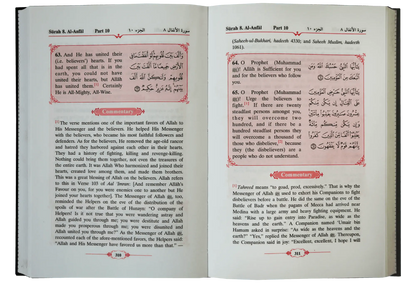 Sûrah 8. Al-Anfâl Part 10 الجزء ١٠ سورة الأنفال ٨
63. And He has united their
(i.e. believers') hearts. If you
had spent all that is in the
earth, you could not have
united their hearts, but Allah
has united them.[1] Certainly
He is All-Mighty, All-Wise.
Commentary
[1] The verse mentions one of the important favors of Allah to
His Messenger and the believers. He helped His Messenger
with the believers, who became his most faithful followers and
defenders. As for the believers, He removed the age-old rancor
and hatred they harbored against each other in their hearts.
They had a history of fighting, killing and revenge-killing.
Nothing could bring them together, not even the treasures of
the entire earth. It was Allah Who harmonized and joined their
hearts, created love among them, and made them brothers.
This was a great blessing of Allah on the believers. Allah refers
to this in Verse 103 of Aal 'Imran: [And remember Allah's
Favour on you, for you were enemies one to another but He
joined your hearts together]. The Messenger of Allah ﷺ, too,
reminded the Helpers on the eve of the distribution of the
spoils of war after the Battle of Hunayn: "O company of
Helpers! Is it not true that you were wandering astray and
Allah guided you through me; you were destitute and Allah
made you prosperous through me; you were disunited and
Allah united you through me?" As the Messenger of Allah ﷺ
recounted each of the afore-mentioned favors, the Helpers said:
"Allah and His Messenger have favored us more than that." —
310
Sûrah 8. Al-Anfâl Part 10 الجزء ١٠ سورة الأنفال ٨
(Saheeh ul-Bukhari, hadeeth 4330; and Saheeh Muslim; hadeeth
1061).
64. O Prophet (Muhammad
ﷺ)! Allah is Sufficient for you
and for the believers who follow
you.
65. O Prophet (Muhammad
ﷺ)! Urge the believers to
fight.[1] If there are twenty
steadfast persons amongst you,
they will overcome two
hundred, and if there be a
hundred steadfast persons they
will overcome a thousand of
those who disbelieve,[2] because
they (the disbelievers) are a
people who do not understand.
Commentary
[1] Tahreed means "to goad, prod, exceedingly." That is why the
Messenger of Allah ﷺ used to exhort his Companions to fight
disbelievers before a battle. He did the same on the eve of the
Battle of Badr when the pagans of Mecca had arrived near
Medina with a large army and heavy fighting equipment. He
said: "Rise up to gain entry into Paradise, as wide as the
heavens and the earth." A Companion named 'Umair bin
Humam asked in surprise: "As wide as the heavens and the
earth?" "Yes," replied the Messenger of Allah ﷺ. Thereupon,
the Companion said in joy: "Excellent, excellent, I hope I will
311